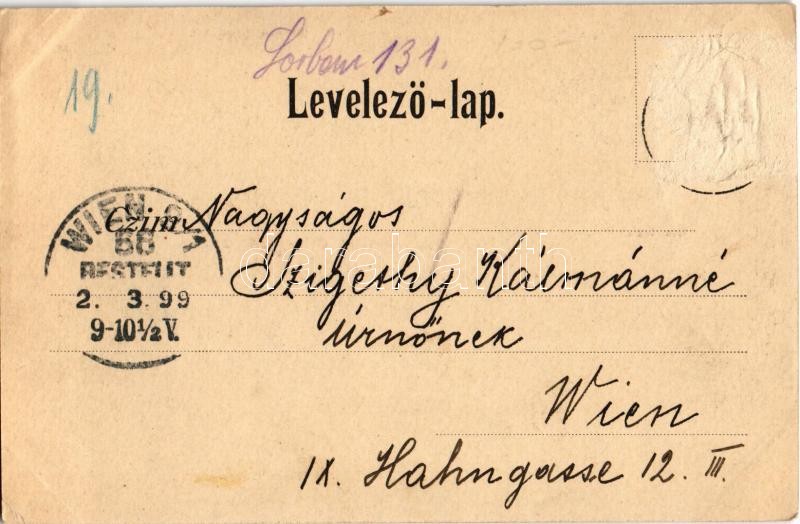 131.
19.
Levelező-lap.
WIEN 9/1
66
BESTELLT
2. 3. 99
9-10½V.
Czim Nagyságos
Szigethy Kálmánné
úrnőnek
Wien
IX. Hahngasse 12. III.
darabanth